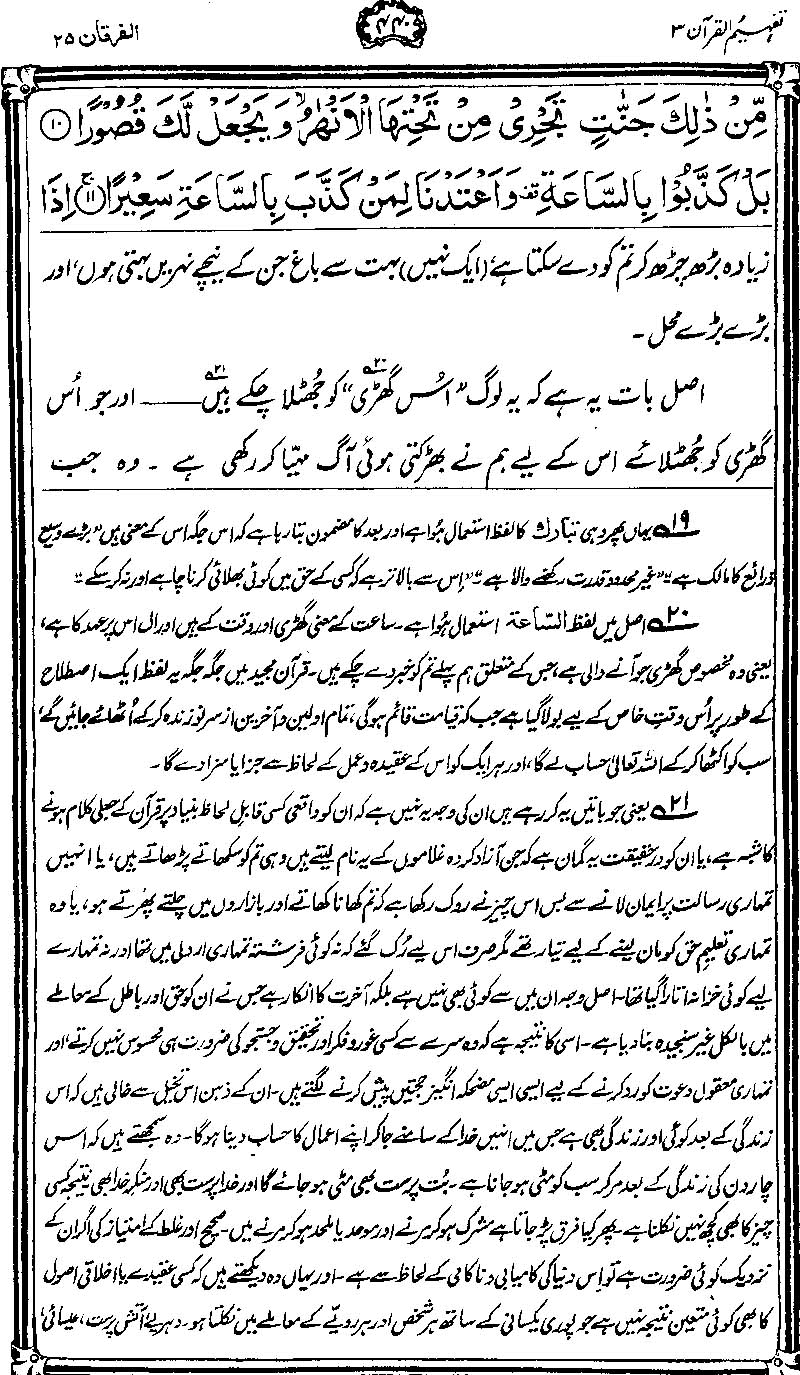 تفہیم القرآن ۳
۴۴۰
الفرقان ۲۵
مِّنْ ذٰلِكَ جَنّٰتٍ تَجْرِیْ مِنْ تَحْتِهَا الْاَنْهٰرُ ۙ وَ یَجْعَلْ لَّكَ قُصُوْرًا ۝۱۰
بَلْ كَذَّبُوْا بِالسَّاعَةِ ۫ وَ اَعْتَدْنَا لِمَنْ كَذَّبَ بِالسَّاعَةِ سَعِیْرًا ۝۱۱ۚ اِذَا
زیادہ بڑھ چڑھ کر تم کو دے سکتا ہے، (ایک نہیں) بہت سے باغ جن کے نیچے نہریں بہتی ہوں، اور
بڑے بڑے محل۔
اصل بات یہ ہے کہ یہ لوگ ”اُس گھڑی“۲۰ کو جُھٹلا چکے ہیں۲۱ ــــــ اور جو اُس
گھڑی کو جُھٹلائے اس کے لیے ہم نے بھڑکتی ہوئی آگ مہیّا کر رکھی ہے ۔ وہ جب
۱۹ یہاں پھر وہی تبارک کا لفظ استعمال ہُوا ہے اور بعد کا مضمون بتا رہا ہے کہ اس جگہ اس کے معنی ہیں ”بڑے وسیع
ذرائع کا مالک ہے“ ”غیر محدود قدرت رکھنے والا ہے“ ”اِس سے بالاتر ہے کہ کسی کے حق میں کوئی بھلائی کرنا چاہے اور نہ کر سکے“
۲۰ اصل میں لفظ الساعة استعمال ہُوا ہے۔ ساعت کے معنی گھڑی اور وقت کے ہیں اور ال اس پر عہد کا ہے،
یعنی وہ مخصوص گھڑی جو آنے والی ہے، جس کے متعلق ہم پہلے تم کو خبر دے چکے ہیں۔ قرآن مجید میں جگہ جگہ یہ لفظ ایک اصطلاح
کے طور پر اُس وقتِ خاص کے لیے بولا گیا ہے جب کہ قیامت قائم ہو گی، تمام اولین و آخرین از سرِ نو زندہ کر کے اُٹھائے جائیں گے،
سب کو اکٹھا کر کے اللہ تعالیٰ حساب لے گا، اور ہر ایک کو اس کے عقیدہ و عمل کے لحاظ سے جزا یا سزا دے گا۔
۲۱ یعنی جو باتیں یہ کر رہے ہیں ان کی وجہ یہ نہیں ہے کہ ان کو واقعی کسی قابلِ لحاظ بنیاد پر قرآن کے جعلی کلام ہونے
کا شبہ ہے، یا ان کو در حقیقت یہ گمان ہے کہ جن آزاد کردہ غلاموں کے یہ نام لیتے ہیں وہی تم کو سکھاتے پڑھاتے ہیں، یا انہیں
تمہاری رسالت پر ایمان لانے سے بس اس چیز نے روک رکھا ہے کہ تم کھانا کھاتے اور بازاروں میں چلتے پھرتے ہو، یا وہ
تمہاری تعلیمِ حق کو مان لینے کے لیے تیار تھے مگر صرف اس لیے رُک گئے کہ نہ کوئی فرشتہ تمہاری اردلی میں تھا اور نہ تمہارے
لیے کوئی خزانہ اتارا گیا تھا۔ اصل وجہ ان میں سے کوئی بھی نہیں ہے بلکہ آخرت کا انکار ہے جس نے ان کو حق اور باطل کے معاملے
میں بالکل غیر سنجیدہ بنا دیا ہے۔ اسی کا نتیجہ ہے کہ وہ سرے سے کسی غور و فکر اور تحقیق و جستجو کی ضرورت ہی محسوس نہیں کرتے، اور
تمہاری معقول دعوت کو رد کرنے کے لیے ایسی ایسی مضحکہ انگیز حجتیں پیش کرنے لگتے ہیں۔ ان کے ذہن اس تخیل سے خالی ہیں کہ اس
زندگی کے بعد کوئی اور زندگی بھی ہے جس میں انہیں خدا کے سامنے جا کر اپنے اعمال کا حساب دینا ہو گا۔ وہ سمجھتے ہیں کہ اس
چار دن کی زندگی کے بعد مر کر سب کو مٹی ہو جانا ہے۔ بُت پرست بھی مٹی ہو جائے گا اور خدا پرست بھی اور منکرِ خدا بھی نتیجہ کسی
چیز کا بھی کچھ نہیں نکلنا ہے۔ پھر کیا فرق پڑ جاتا ہے مشرک ہو کر مرنے اور موحد یا ملحد ہو کر مرنے میں۔ صحیح اور غلط کے امتیاز کی اگر ان کے
نزدیک کوئی ضرورت ہے تو اِس دنیا کی کامیابی و ناکامی کے لحاظ سے ہے۔ اور یہاں وہ دیکھتے ہیں کہ کسی عقیدے یا اخلاقی اصول
کا بھی کوئی متعین نتیجہ نہیں ہے جو پوری یکسانی کے ساتھ ہر شخص اور ہر رویّے کے معاملے میں نکلتا ہو۔ دہریے، آتش پرست، عیسائی،